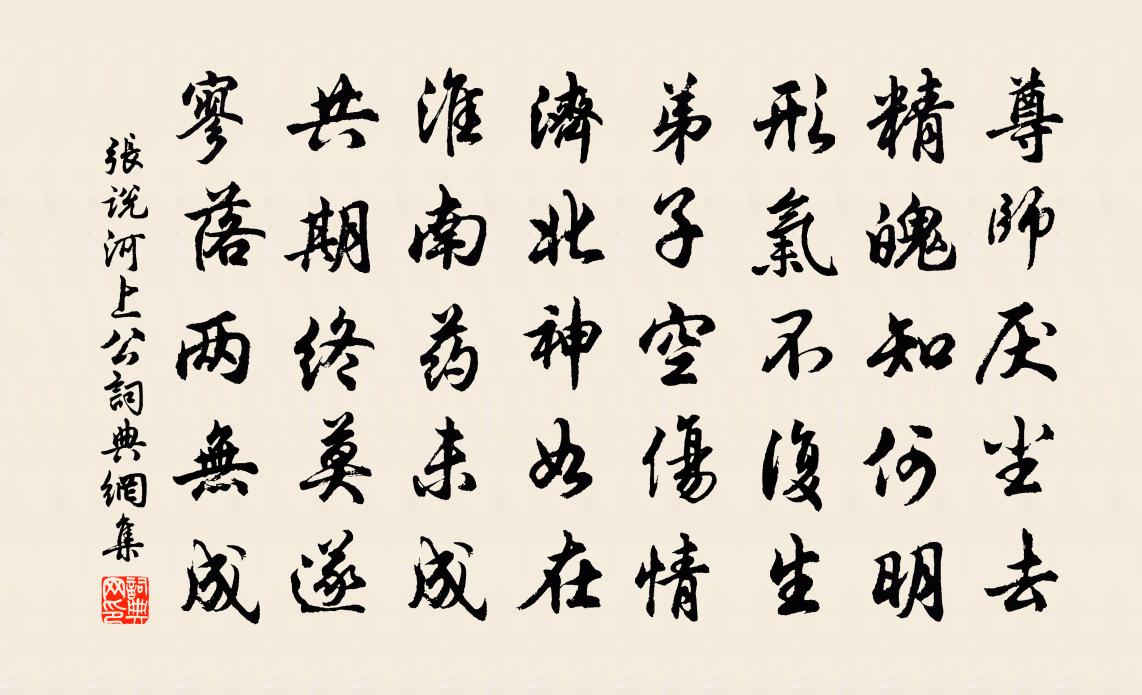 尊師厌尘去
精魄知何明
形氣不復生
弟子空傷情
濟北神如在
淮南药未成
共期终莫遂
寥落两無成
張说河上公詞典網集
詞典网印